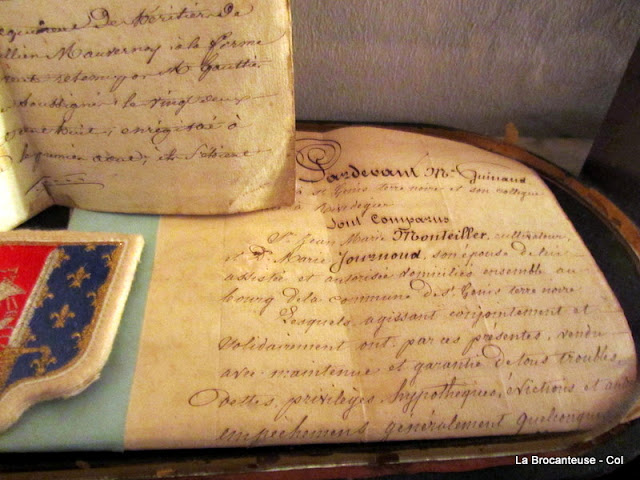 de héritier de
Mauvernay à la forme
par Mr
soussigné le vingt deux
huit; enrégistré à
Pardevant Me Guinaud
à St Genis terre noire et son collègue
Sont Comparus
Sr Jean Marie Monteiller, cultivateur,
et De Marie Journoud, son épouse de lui
assistée et autorisée domiciliés ensemble au
bourg de la commune de St Genis terre noire
Lesquels, agissant conjointement et
solidairement ont par ces présentes, vendu
avec maintenue et garantie de tous troubles,
dettes, privilèges, hypothèques, évictions et
empêchemens généralement quelconques
La Brocanteuse - Col